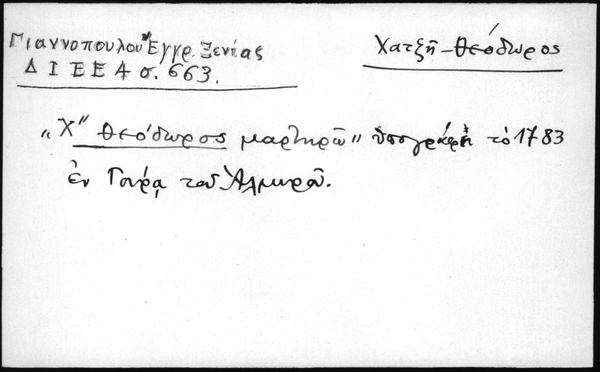 Γιαννοπούλου Ἔγγρ. Ξενίας
Δ Ι Ε Ε 4 σ. 663.
Χατζῆ-Θεόδωρος
„Χ" Θεόδωρος μαρτηρῶ" ὑπογράφει τὸ 1783
ἐν Γούρᾳ τοῦ Ἁλμυροῦ.